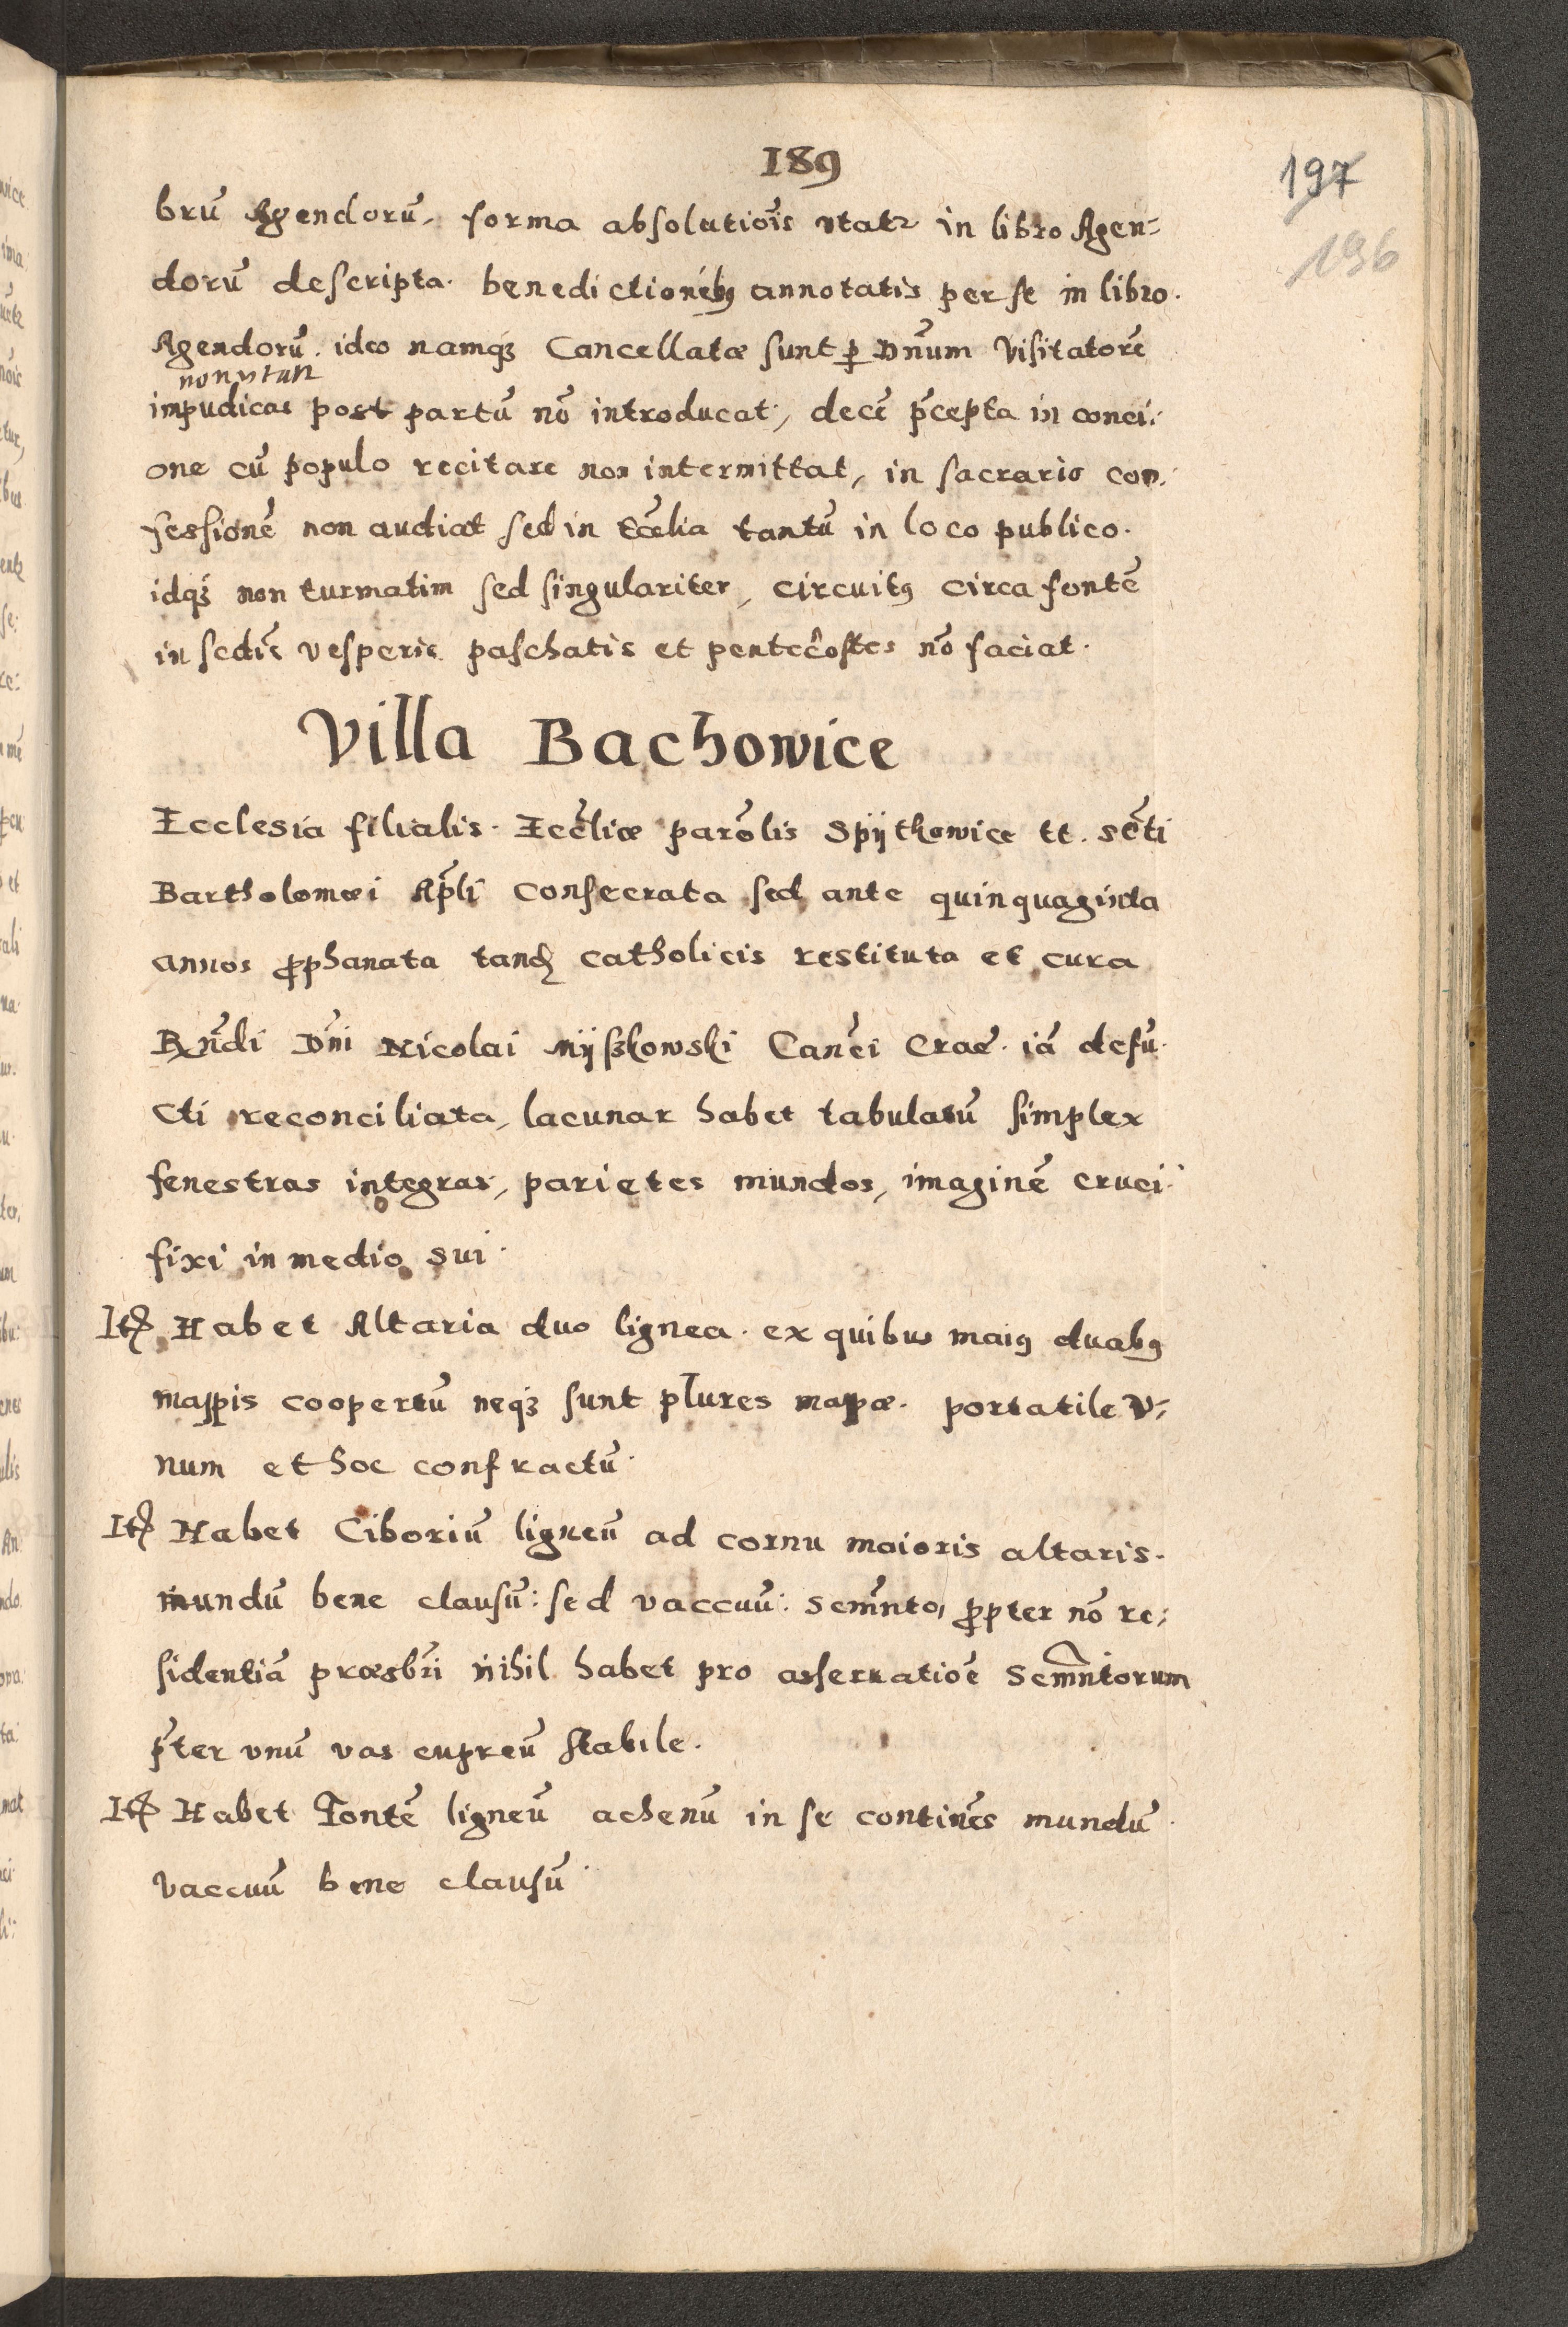 189
197
196
brū Agendorū, forma absolutiōis vtatr in libro Agen⸗
dorū descripta. benedictionibꝰ annotatis per se in libro.
Agendorū. ideo namqꝫ Cancellatæ sunt ꝑ Dn̄um Visitatorē
non vtatr
impudicas post partū nō introducat, decē p̄cepta in conci⸗
one cū populo recitare non intermittat, in sacrario con⸗
fessionē non audiat sed in Eccl̄ia tantū in loco publico.
idqꝫ non turmatim sed singulariter, circuitꝰ circa fontē
in sedīs vesperis paschatis et pentecostes nō faciat.
Villa Bachowice
Ecclesia filialis. Eccl̄iæ parōlis Spijtkowice tt. Sc̄ti
Bartholomæi Ap̄li consecrata sed ante quinquaginta
annos ꝓphanata tandē catholicis restituta et cura
Rn̄di Dn̄i Nicolai Mijszkowski Canc̄i Crac̄. iā defū⸗
cti reconciliata, lacunar habet tabulatū simplex
fenestras integras, parietes mundos, imaginē cruci⸗
fixi in medio sui.
Itē Habet Altaria duo lignea. ex quibus maiꝰ duabꝰ
mappis coopertū neqꝫ sunt plures mappæ. portatile v⸗
num et hoc confractū.
Itē Habet Ciboriū ligneū ad cornu maioris altaris.
mundū bene clausū: sed vaccuū: Scm̄nto, ꝓpter nō re⸗
sidentiā præsbr̄i nihil habet pro asseruatiōe Scm̄ntorum
p̄ter vnū vas cupreū stabile.
Itē Habet Fontē ligneū achenū in se continēs mundū
vaccuū bene clausū